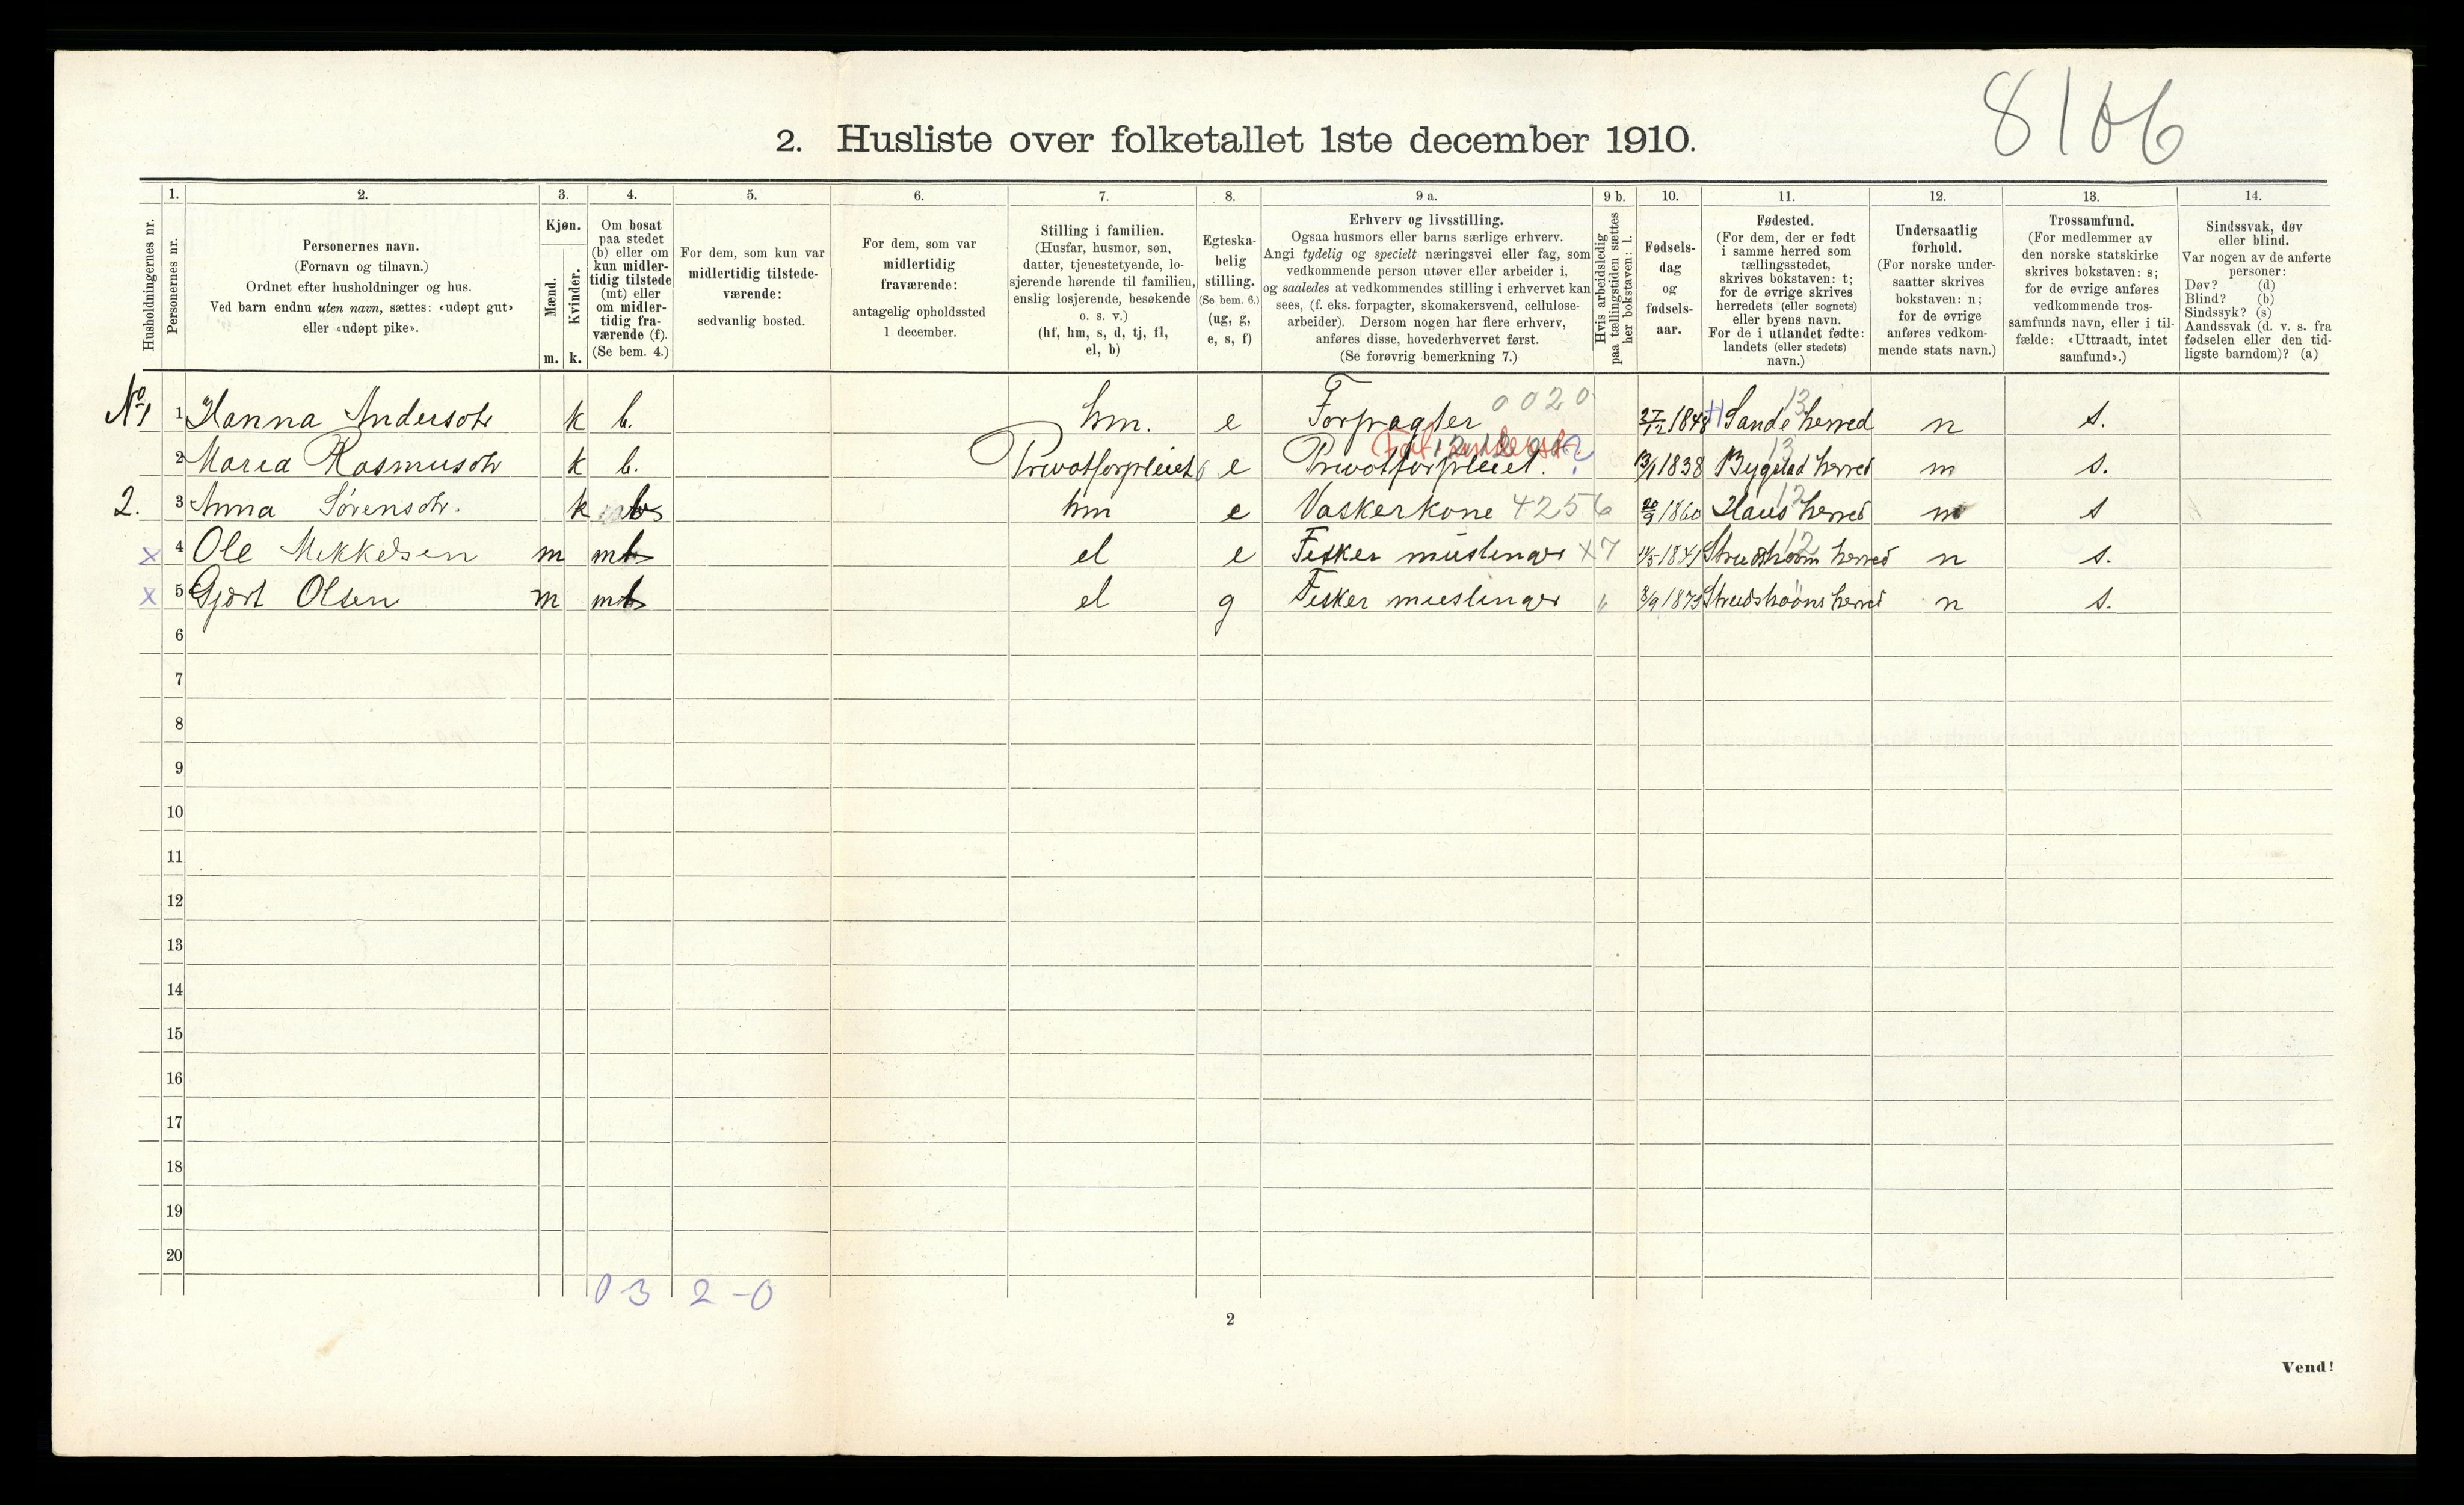 8106
2. Husliste over folketallet 1ste december 1910.
1. 2. 3. 4. 5. 6. 7. 8. 9 a. 9 b. 10. 11. 12. 13. 14.
Husholdningernes nr.
Personernes nr.
Personernes navn.
(Fornavn og tilnavn.)
Ordnet efter husholdninger og hus.
Ved barn endnu uten navn, sættes: «udøpt gut»
eller «udøpt pike».
Kjøn.
Mænd.
Kvinder.
m. k.
Om bosat
paa stedet
(b) eller om
kun midler-
tidig tilstede
(mt) eller
om midler-
tidig fra-
værende (f).
(Se bem. 4.)
For dem, som kun var
midlertidig tilstede-
værende:
sedvanlig bosted.
For dem, som var
midlertidig
fraværende:
antagelig opholdssted
1 december.
Stilling i familien.
(Husfar, husmor, søn,
datter, tjenestetyende, lo-
sjerende hørende til familien,
enslig losjerende, besøkende
o. s. v.)
(hf, hm, s, d, tj, fl,
el, b)
Egteska-
belig
stilling.
(Se bem. 6.)
(ug, g,
e, s, f)
Erhverv og livsstilling.
Ogsaa husmors eller barns særlige erhverv.
Angi tydelig og specielt næringsvei eller fag, som
vedkommende person utøver eller arbeider i,
og saaledes at vedkommendes stilling i erhvervet kan
sees, (f. eks. forpagter, skomakersvend, cellulose-
arbeider). Dersom nogen har flere erhverv,
anføres disse, hovederhvervet først.
(Se forøvrig bemerkning 7.)
Hvis arbeidsledig
paa tællingstiden sættes
her bokstaven: l.
Fødsels-
dag
og
fødsels-
aar.
Fødested.
(For dem, der er født
i samme herred som
tællingsstedet,
skrives bokstaven: t;
for de øvrige skrives
herredets (eller sognets)
eller byens navn.
For de i utlandet fødte:
landets (eller stedets)
navn.)
Undersaatlig
forhold.
(For norske under-
saatter skrives
bokstaven: n;
for de øvrige
anføres vedkom-
mende stats navn.)
Trossamfund.
(For medlemmer av
den norske statskirke
skrives bokstaven: s;
for de øvrige anføres
vedkommende tros-
samfunds navn, eller i til-
fælde: «Uttraadt, intet
samfund».)
Sindssvak, døv
eller blind.
Var nogen av de anførte
personer:
Døv? (d)
Blind? (b)
Sindssyk? (s)
Aandssvak (d. v. s. fra
fødselen eller den tid-
ligste barndom)? (a)
No 1 1 Hanna Andersdtr k b. hm. e Forpagter 0020 27/12 1848 Sande herred 13 n s.
2 Maria Rasmusdtr k b. Privatforpleiet e Privatforpleiet. ? 13/1 1838 Bygstad herred 13 n s.
2. 3 Anna Sørensdtr. k b hm e Vaskerkone 4256 20/9 1860 Haus herred 12 n s
x 4 Ole Mikkelsen m mt el e Fisker muslinger x7 1841 herred 12 n s.
x 5 Gjert Olsen m mt el g Fisker muslinger 8/9 1875 herred n s.
6
7
8
9
10
11
12
13
14
15
16
17
18
19
20
0 3 2-0
2
Vend!